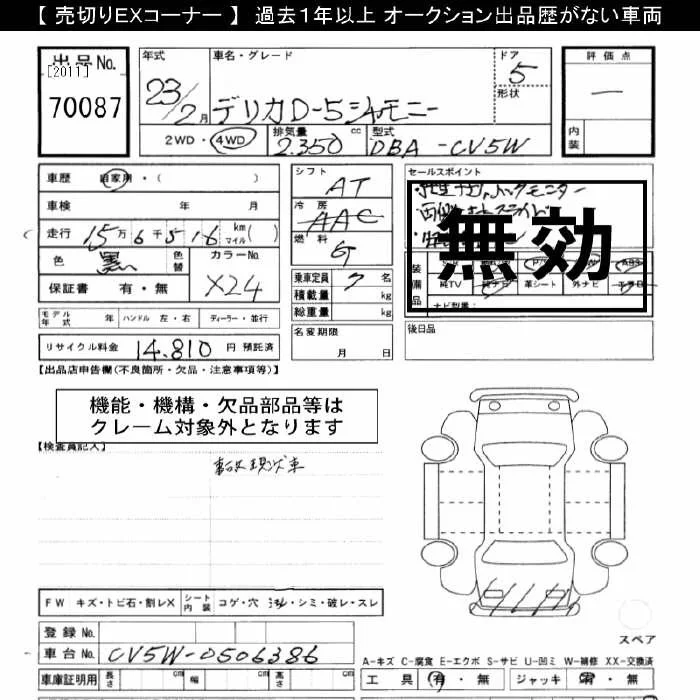 【 売切りEXコーナー 】 過去１年以上 オークション出品歴がない車両
出品No. [2011] 70087
年式 23/2月
車名・グレード デリカD-5シャモニー
ドア 5 形状
2WD・4WD 排気量 2.350 cc 型式 DBA-CV5W
評価点 —
内装
車歴 自家用・( )
車検 年 月
走行 15万6千516 km マイル( )
色 黒 色替 カラーNo. X24
保証書 有・無
モデル年式 年 ハンドル 左・右 ディーラー・並行
リサイクル料金 14.810 円 預託済
シフト AT
冷房 AAC
燃料 G
乗車定員 7 名
積載量 kg
総重量 kg
名変期限 月 日
セールスポイント
無効
装備品
純TV 革シート 外ナビ エアB
ナビ型番:
後日品
【出品店申告欄(不良箇所・欠品・注意事項等)】
機能・機構・欠品部品等は
クレーム対象外となります
【検査員記入】
事故現状車
FW キズ・トビ石・割レX シート内装 コゲ・穴 ヨゴレ・シミ・破レ・スレ
登録 No.
車台 No. CV5W-0506386
車庫証明用 長さ cm 幅 cm 高さ cm
スペア
A-キズ C-腐食 E-エクボ S-サビ U-凹ミ W-補修 XX-交換済
工具 有・無 ジャッキ 有・無